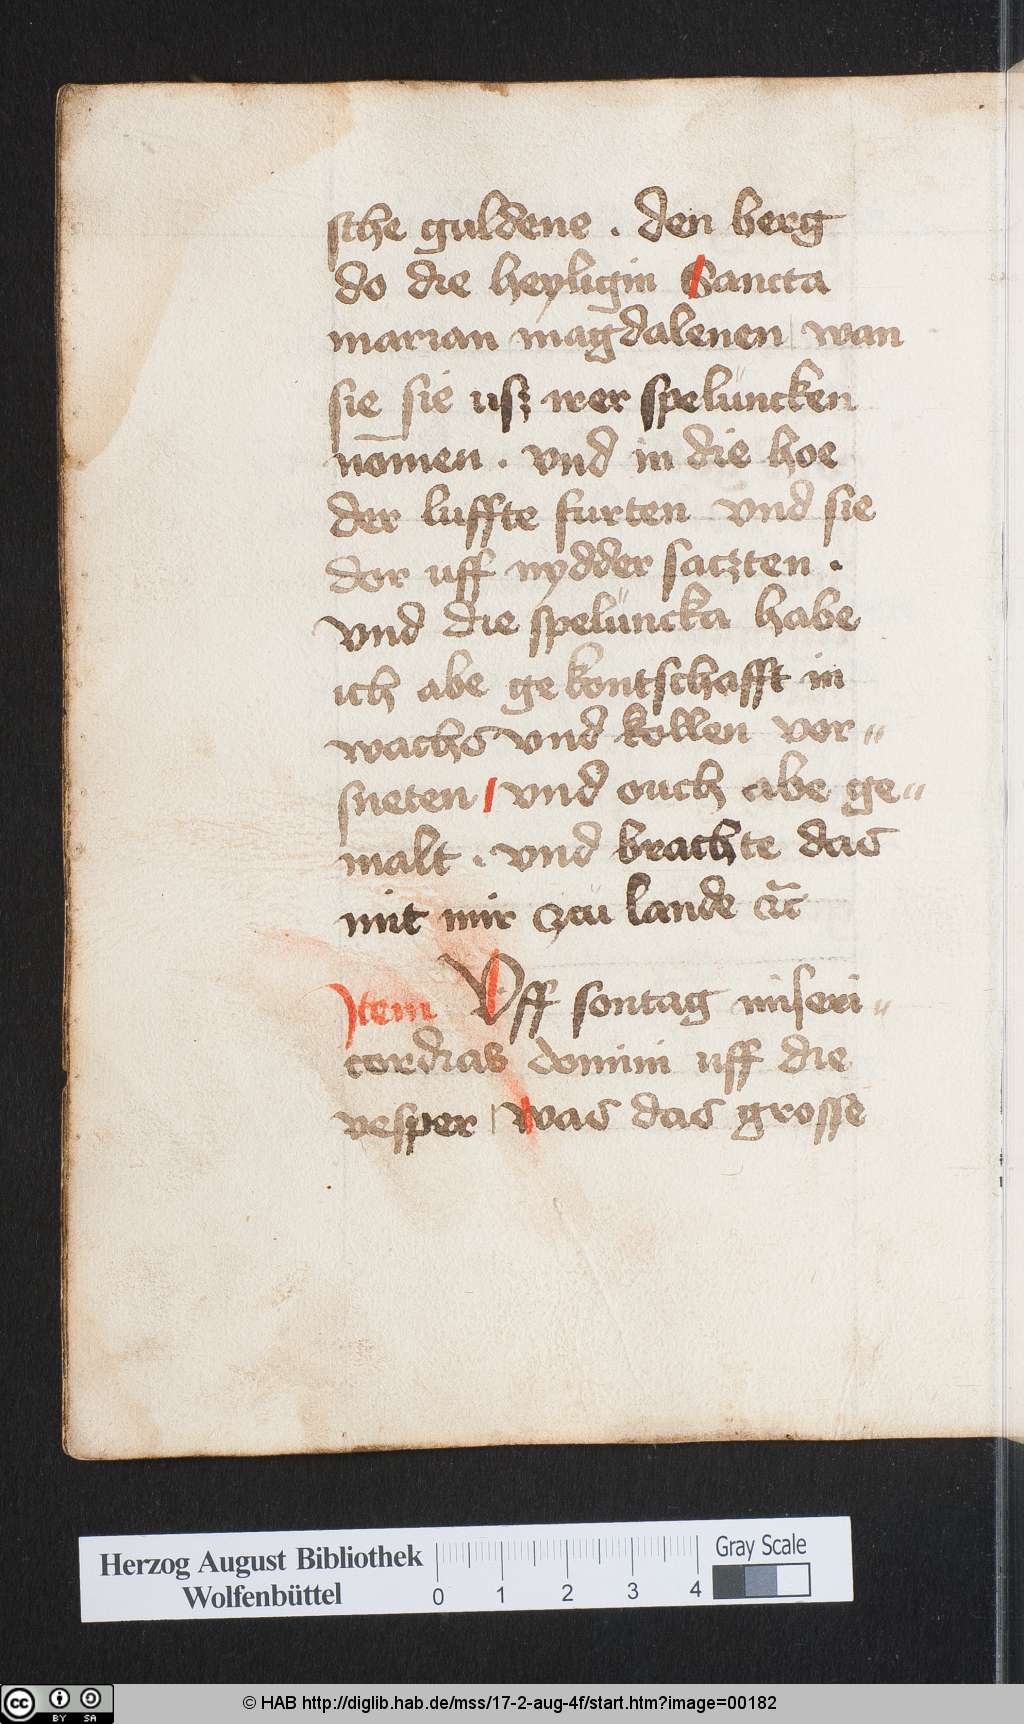 sche guldene . den berg
do die heyligin Sancta
marian magdalenen | wan
sie sie usz irer speluncken
nomen . vnd in die hoe
der luffte furten vnd sie
dor uff nydder saczten .
vnd die speluncka habe
ich abe gekontschafft in
wachs vnd kollen vor„
sneten / vnd ouch abe ge„
malt . vnd brachte das
mit mir zcu lande ⁊c̄
Item Vff sontag miseri„
cordias domini uff die
vesper | was das grosse
Herzog August Bibliothek
Wolfenbüttel
0 1 2 3 4
Gray Scale
cc BY SA
© HAB http://diglib.hab.de/mss/17-2-aug-4f/start.htm?image=00182